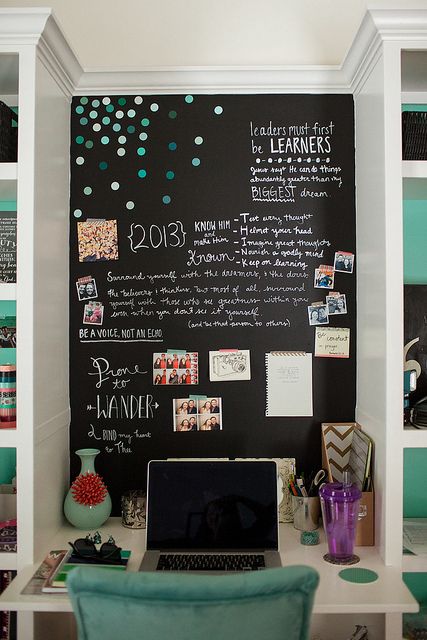 leaders must first
be LEARNERS
Jesus says He can do things
abundantly greater than my
BIGGEST dream.
{2013}
KNOW HIM
and
make Him
Known
- Test every thought
- Helmet your head
- Imagine great thoughts
- Nourish a godly mind
- Keep on learning
Surround yourself with the dreamers, & the doers,
the believers & thinkers, but most of all, surround
yourself with those who see greatness within you
even when you don't see it yourself.
(and be that person to others)
BE A VOICE, NOT AN ECHO
Be
constant
in
prayer
Prone
to
WANDER
BIND my heart
to Thee